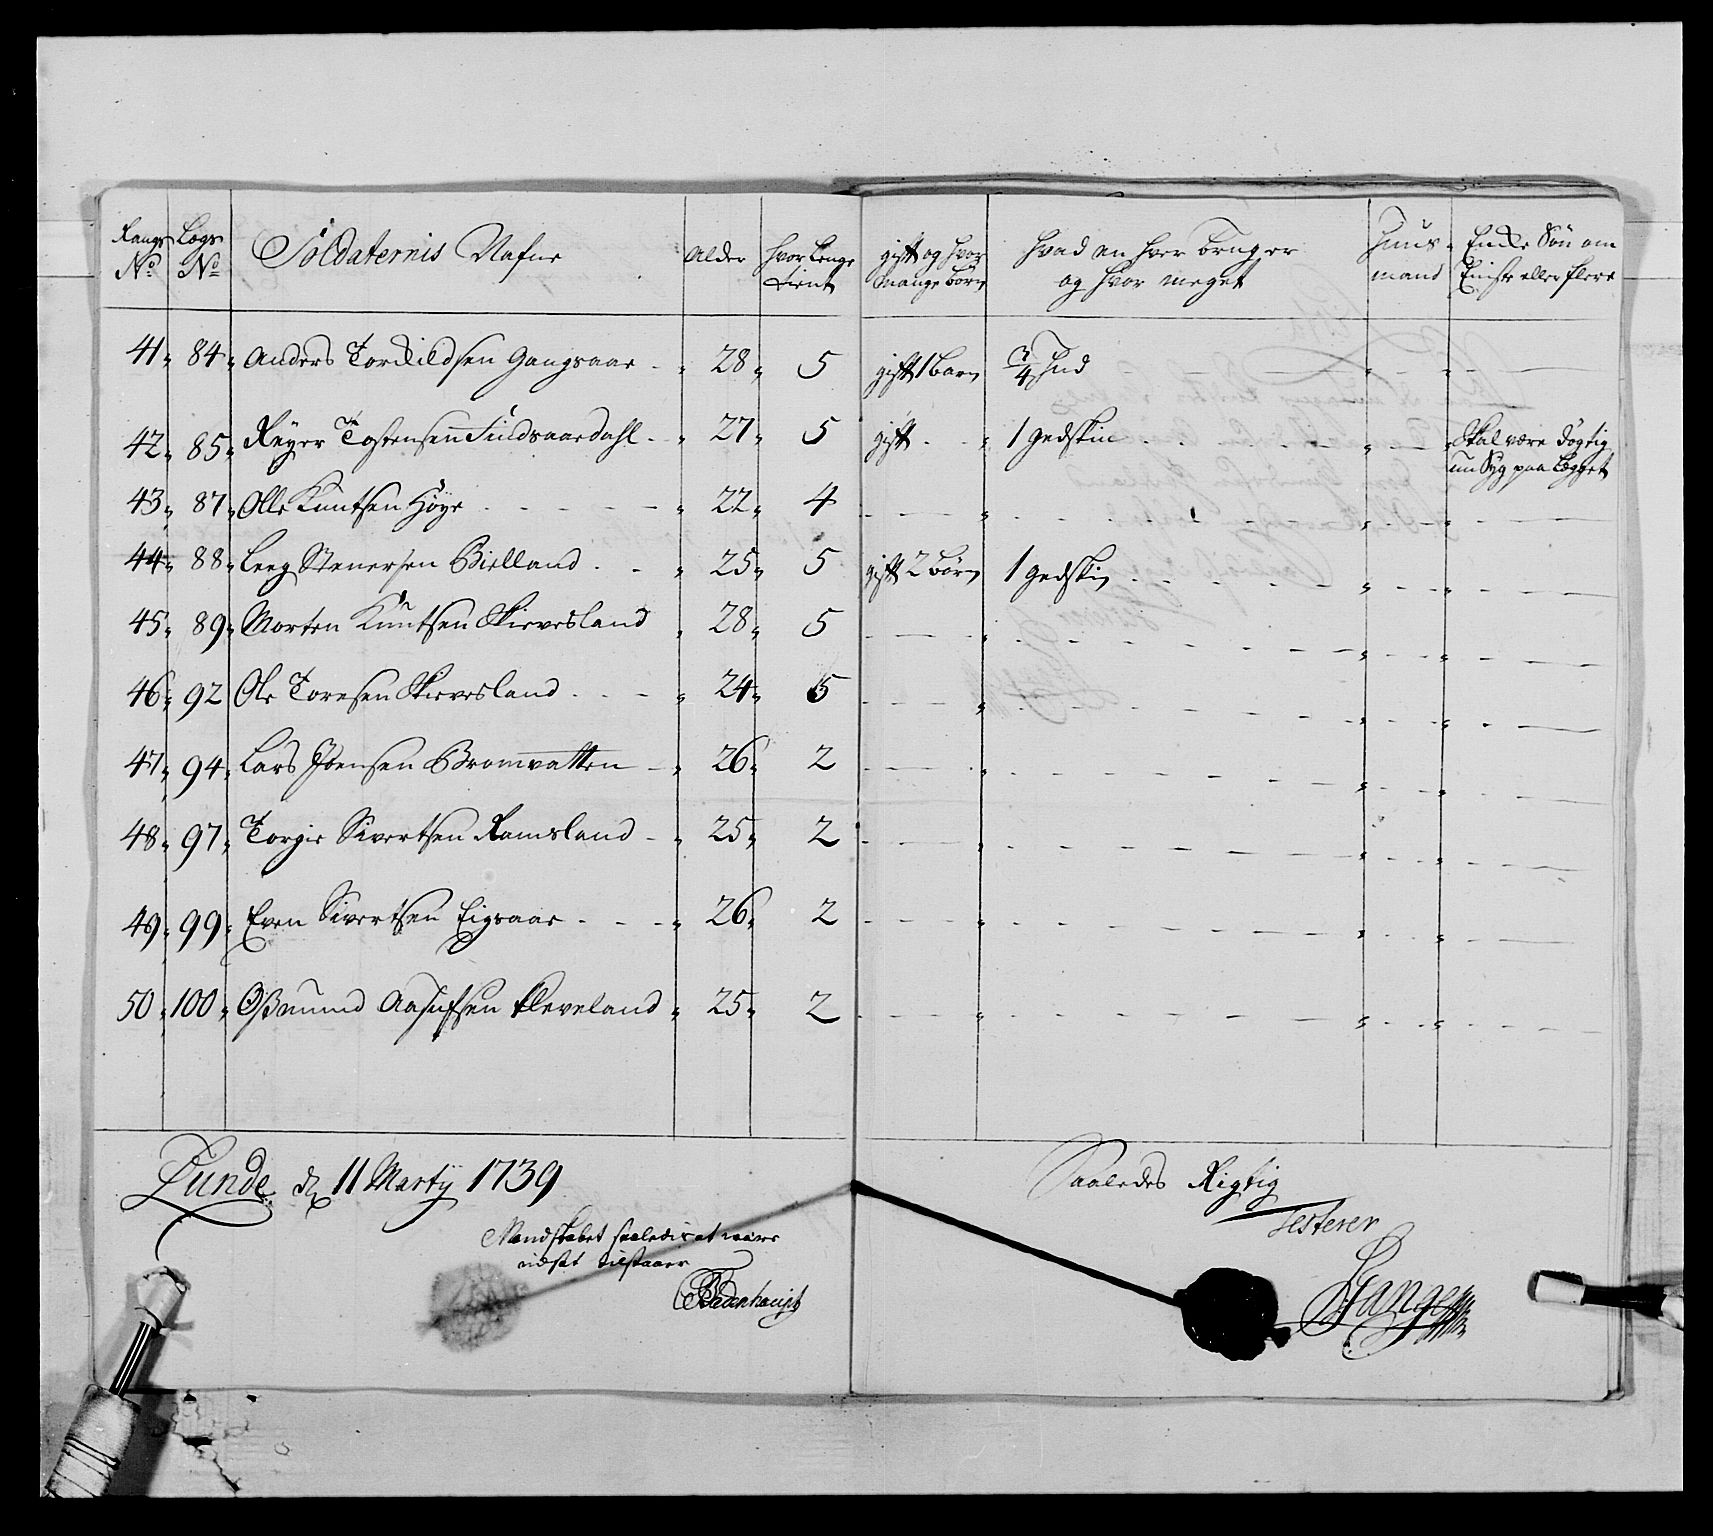 Rangs No
Legs No
Soldaternis Nafne
Alder
hvor Lenge tient
gift og hvor mange børn
hvad en hver bruger og hvor meget
Huus mand
Enkke Søn om Eniste eller flere
41 84 Anders Torkildsen Gangsaae 28 5 gift 1 barn 3/4 Hud
42 85 Reyer Tostensen Findsaasdahl 27 5 gift 1 gedskin Skal være døgtig
nu Syg paa Legget
43 87 Olle Knutsen Høye 22 4
44 88 Leeg Stenersen Bielland 25 5 gift 2 børn 1 gedskin
45 89 Morten Knutsen Skievesland 28 5
46 92 Ole Toresen Skievesland 24 5
47 94 Lars Joensen Bromvatten 26 2
48 97 Torgie Sivertsen Ramsland 25 2
49 99 Even Sivertsen Eigsaae 26 2
50 100 Osmund Aasufsen Kleveland 25 2
Lunde d 11 Marty 1739
Mandskabet saaledis at være
udsat tilstaaer
Badenhaupt
Saaledes Rigtig
Testerer
Stange